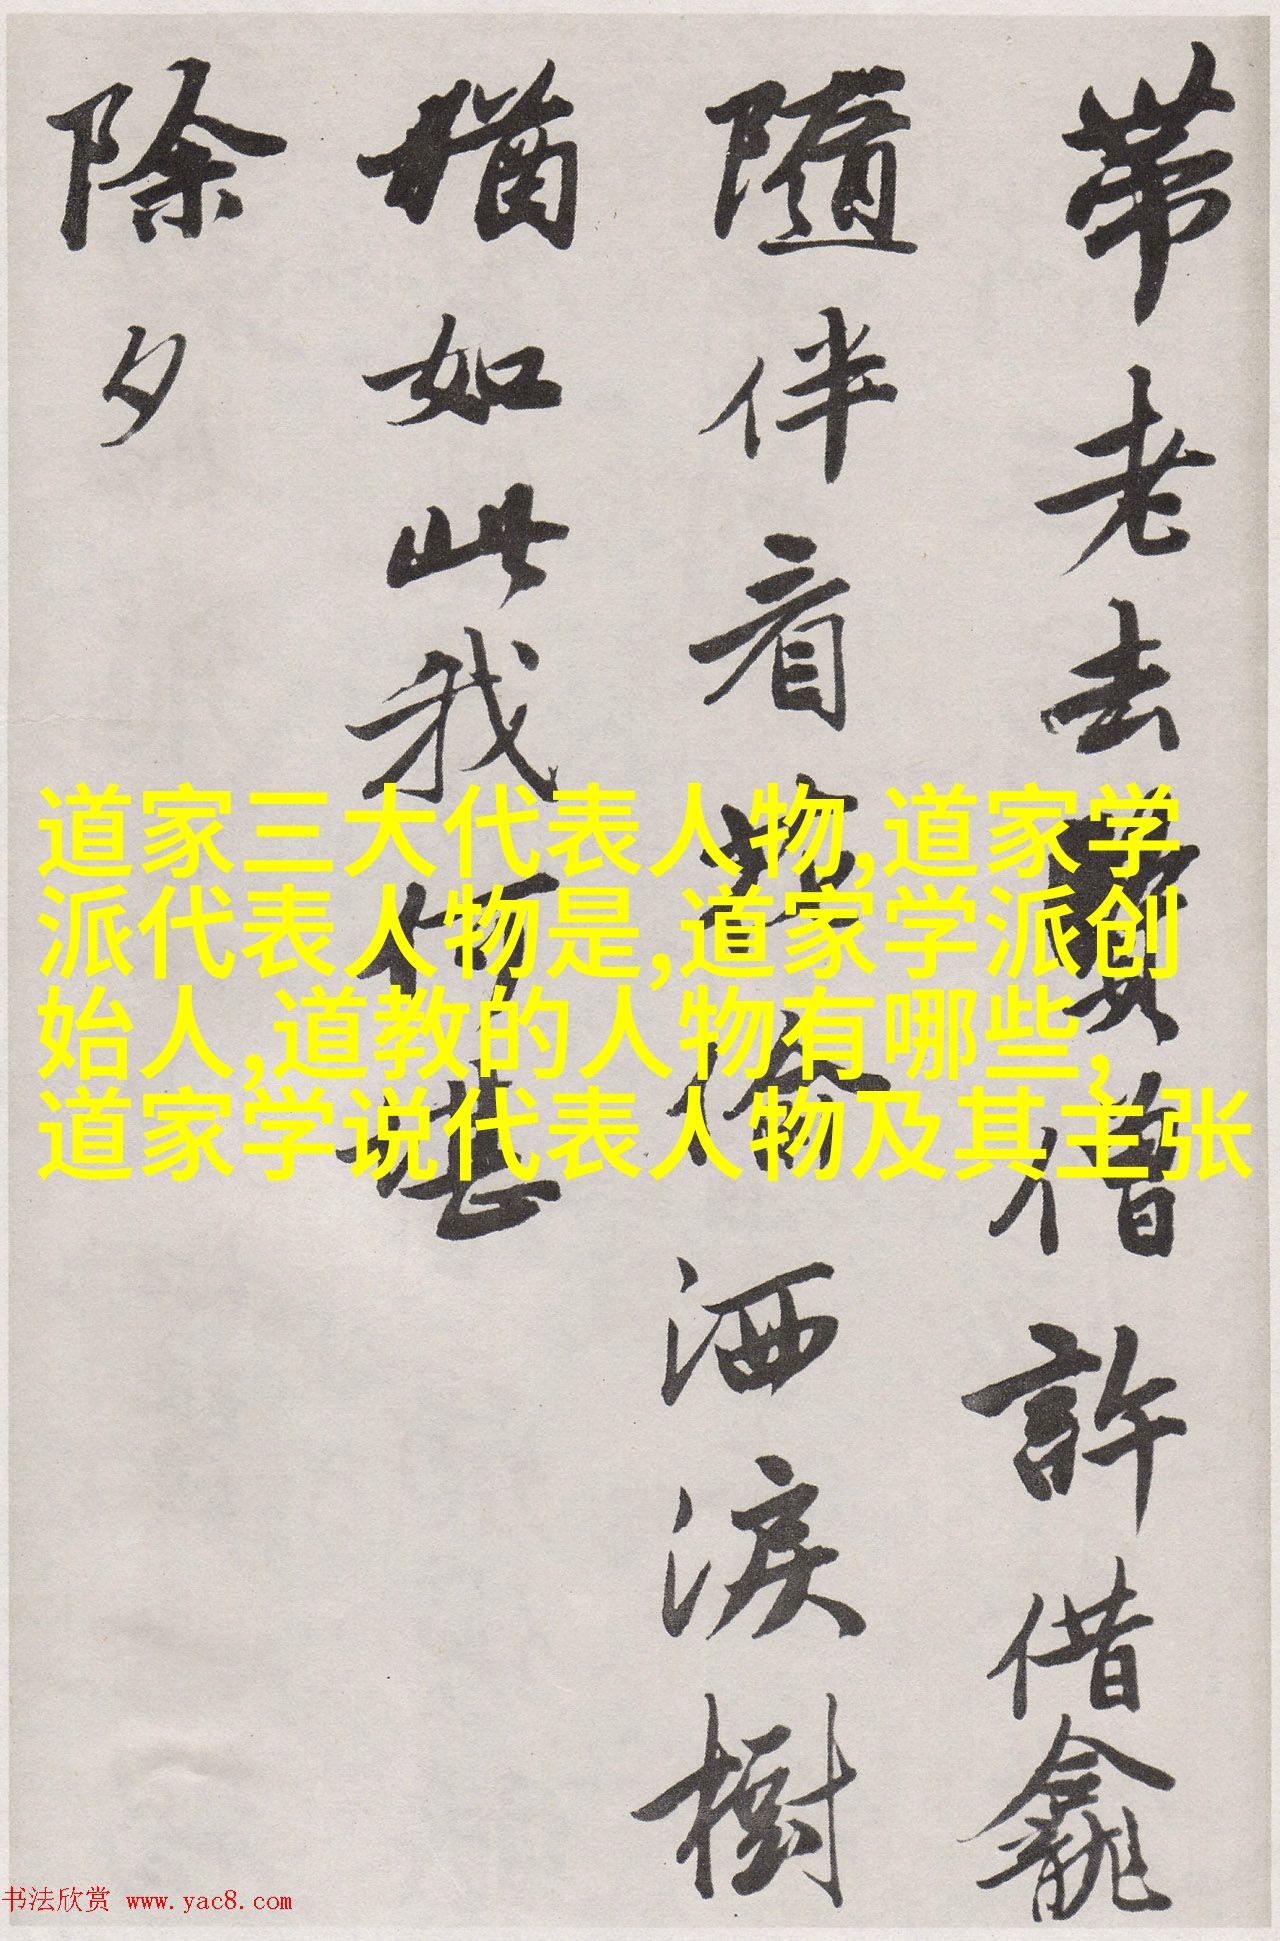 带老去梦僧許借龕
隨伴着
洒淚樹
猶如此我何堪
除夕
道家三大代表人物,道家学
派代表人物是,道家学派创
始人,道教的人物有哪些,
道家学说代表人物及其主张
书法欣赏 www.yac8.com